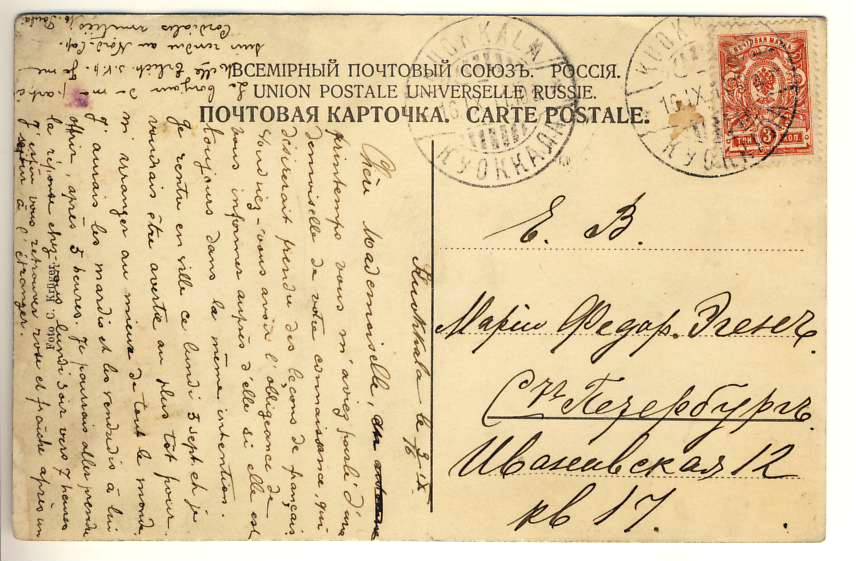 ВСЕМІРНЫЙ ПОЧТОВЫЙ СОЮЗЪ. РОССІЯ.
UNION POSTALE UNIVERSELLE RUSSIE.
ПОЧТОВАЯ КАРТОЧКА. CARTE POSTALE.
KUOKKALA
КУОККАЛА
KUOKKALA
КУОККАЛА
ПОЧТОВАЯ МАРКА
ТРИ 3 КОП
Е. В.
Маріи Федор.
С. Петербургъ.
Ивановская 12
кв 17.
Kuokkala le
Chère Mademoiselle,
printemps vous m'aviez parlé d'une
demoiselle de votre connaissance, qui
désirerait prendre des leçons de français.
Voudriez-vous avoir l'obligeance de
vous informer auprès d'elle si elle est
toujours dans la même intention.
Je rentre en ville ce lundi 5 sept. et je
voudrais être avertie au plus tôt pour
m'arranger au mieux de tout le monde.
J'aurais les mardis et les vendredis à lui
offrir, après 5 heures. Je pourrais aller prendre
la réponse chez vous lundi soir vers 7 heures
J'espère vous retrouver rose et fraîche après un
séjour à l'étranger.
Le bonjour de ma part à
Mlle
suis rendue au Nord-Cap.
Cordiales amitiés